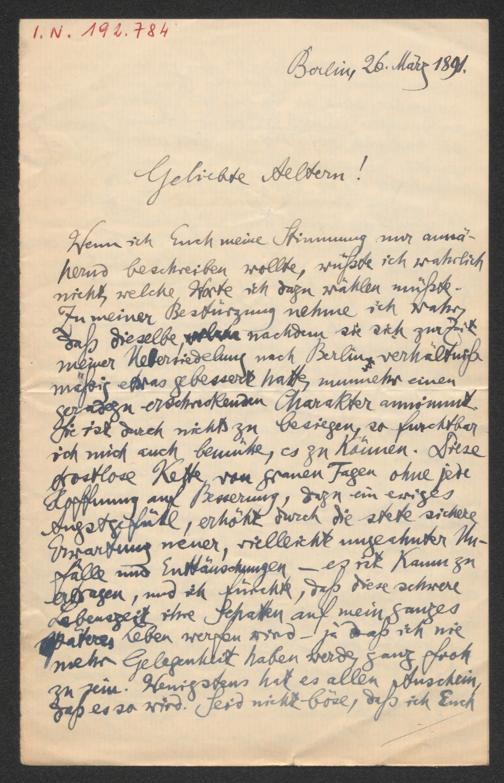 I.N. 192.784
Berlin, 26. März 1891.
Geliebte Aeltern!
Wenn ich Euch meine Stimmung nur annä-
hernd beschreiben wollte, wüßte ich wahrlich
nicht, welche Worte ich dazu wählen müßte.
Zu meiner Bestürzung nehme ich wahr,
daß dieselbe nachdem sie sich zur Zeit
meiner Uebersiedelung nach Berlin, verhältniß-
mäßig etwas gebessert hatte, nunmehr einen
geradezu erschreckenden Charakter annimmt.
Sie ist durch nichts zu besiegen, so furchtbar
ich mich auch bemühe, es zu können. Diese
trostlose Kette von grauen Tagen ohne jede
Hoffnung auf Besserung, dazu ein ewiges
Angstgefühl, erhöht durch die stete sichere
Erwartung neuer, vielleicht ungeahnter Un-
fälle und Enttäuschungen – es ist kaum zu
ertragen, und ich fürchte, daß diese schwere
Lebenszeit ihre Schatten auf mein ganzes
späteres Leben werfen wird – ja daß ich nie
mehr Gelegenheit haben werde, ganz froh
zu sein. Wenigstens hat es allen Anschein,
daß es so wird. Seid nicht böse, daß ich Euch